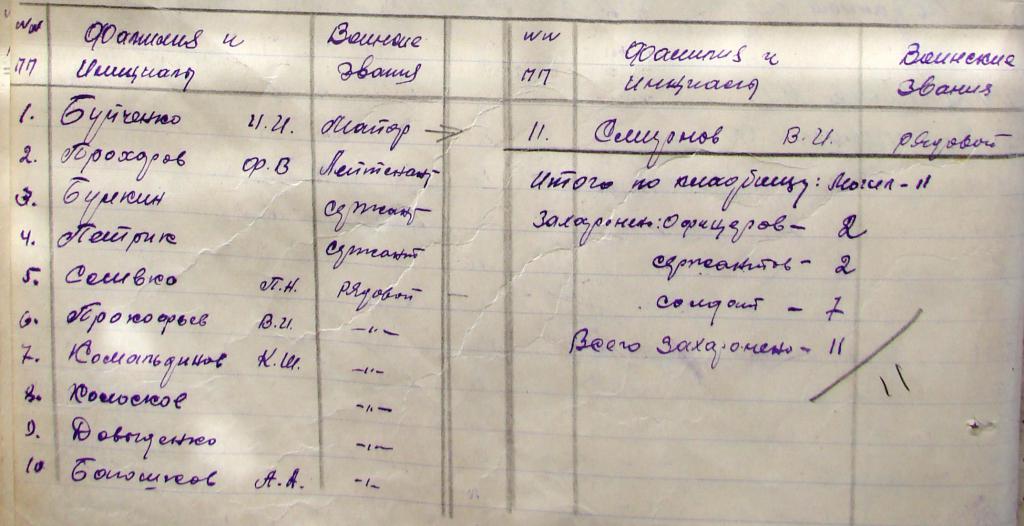 №№ Фамилия и Воинские
пп Инициалы Звания
1. Буйченко И.И. Майор
2. Прохоров Ф.В Лейтенант
3. Бункин сержант
4. Петрик сержант
5. Семвко П.Н. рядовой
6. Прокофьев В.И. -"-
7. Комальдинов К.Ш. -"-
8. Колосков -"-
9. Довыденко -"-
10 Богошков А.А. -"-
№№ Фамилия и Воинские
пп Инициалы Звания
11. Смирнов В.И. рядовой
Итого по кладбищу: Могил - 11
Захоронено: Офицеров - 2
сержантов - 2
солдат - 7
Всего захоронено - 11
11